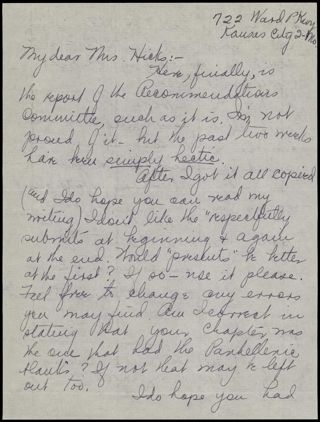 722 Ward Pkwy
Kansas City 2-Mo
My dear Mrs. Hicks:-
Here, finally, is
the report of the Recommendations
Committee, such as it is. I'm not
proud of it - but the past two weeks
have been simply hectic.
After I got it all copied
(and I do hope you can read my
writing) I don't like the "respectfully
submits at beginning & again
at the end. Would "presents" be better
at the first? If so - use it please.
Feel free to change any errors
you may find. Am I correct in
stating that your Chapter was
the one that had the Panhellenic
? If not that may be left
out too.
I do hope you had